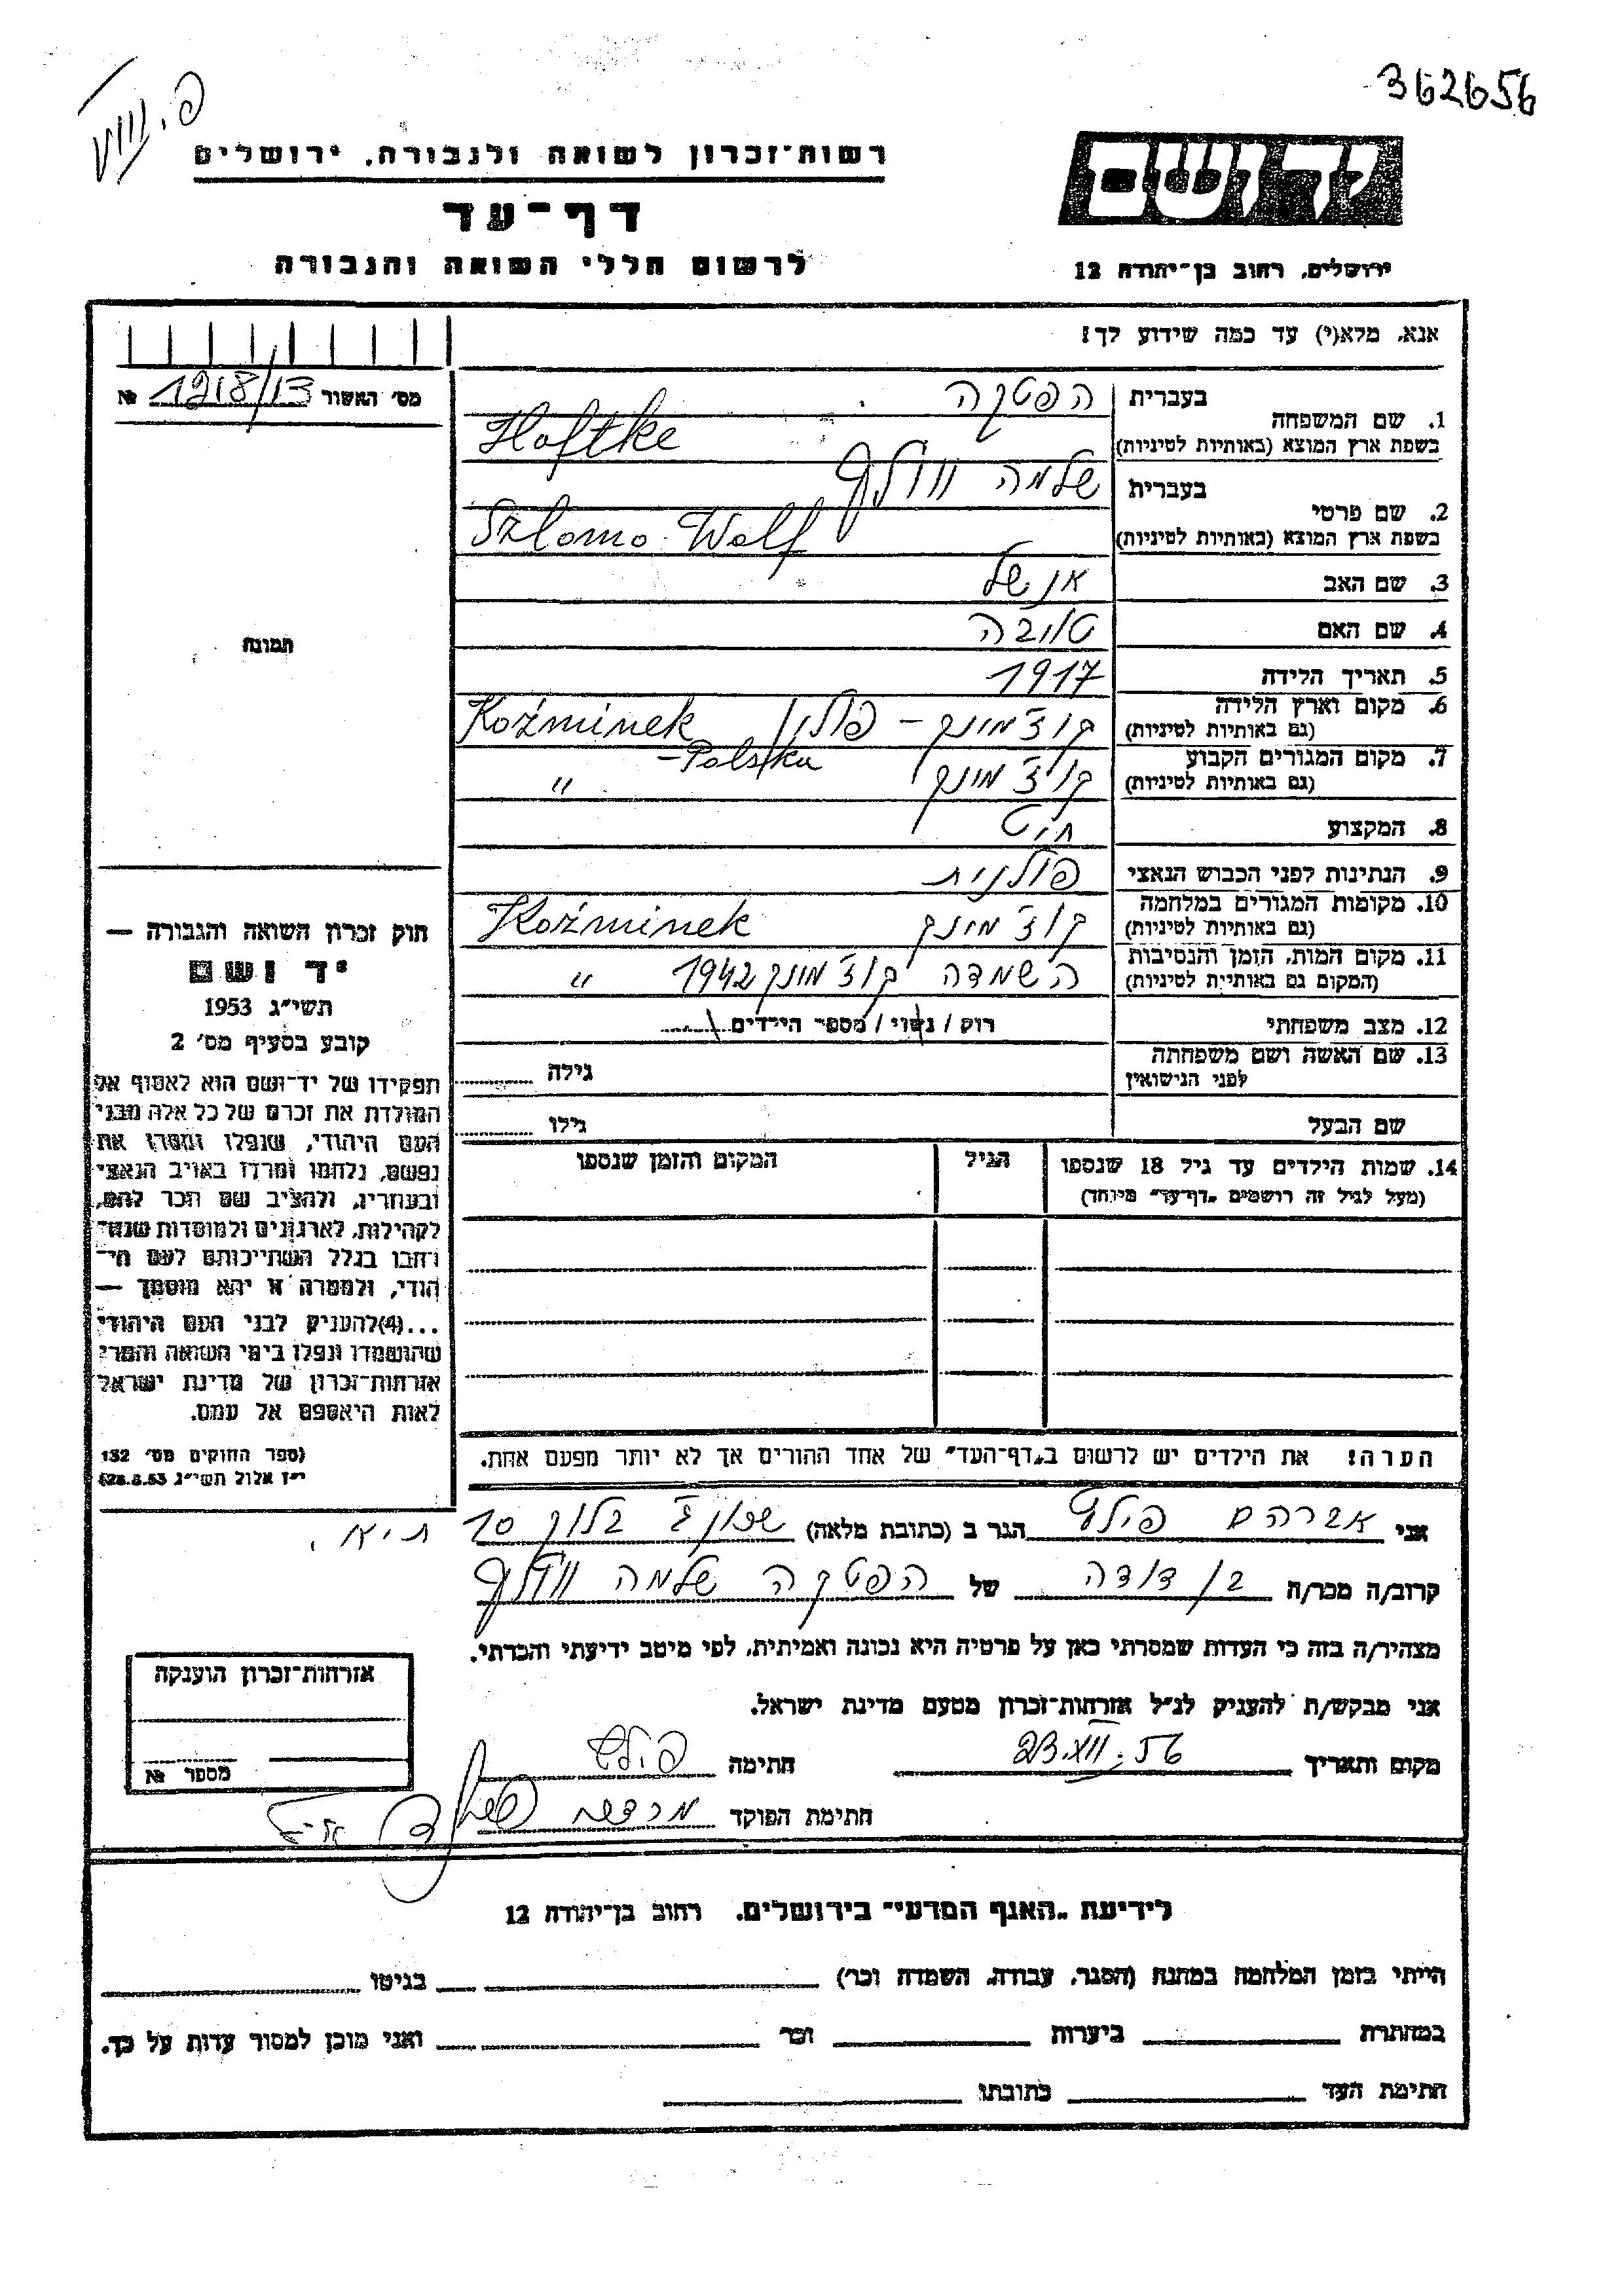 362656
פ. VIII
יד ושם
ירושלים, רחוב בן־יהודה 12
רשות־זכרון לשואה ולגבורה, ירושלים
דף־עד
לרשום חללי השואה והגבורה
אנא, מלא(י) עד כמה שידוע לך!
מס׳ האשור 1218/13 №
תמונה
1. שם המשפחה בעברית הפטקה
בשפת ארץ המוצא (באותיות לטיניות) Haftke
2. שם פרטי בעברית שלמה וולף
בשפת ארץ המוצא (באותיות לטיניות) Szlomo Wolf
3. שם האב אנשל
4. שם האם טובה
5. תאריך הלידה 1917
6. מקום וארץ הלידה קוז׳מינק – פולין Koźminek
(גם באותיות לטיניות) – Polska
7. מקום המגורים הקבוע קוז׳מינק "
(גם באותיות לטיניות)
8. המקצוע חיט
9. הנתינות לפני הכבוש הנאצי פולנית
10. מקומות המגורים במלחמה קוז׳מינק Koźminek
(גם באותיות לטיניות)
11. מקום המות, הזמן והנסיבות השמדה קוז׳מינק 1942 "
(המקום גם באותיות לטיניות)
12. מצב משפחתי רוק / נשוי / מספר הילדים
13. שם האשה ושם משפחתה גילה
לפני הנישואין
שם הבעל גילו
14. שמות הילדים עד גיל 18 שנספו הגיל המקום והזמן שנספו
(מעל לגיל זה רושמים „דף־עד” מיוחד)
חוק זכרון השואה והגבורה —
יד ושם
תשי״ג 1953
קובע בסעיף מס׳ 2
תפקידו של יד־ושם הוא לאסוף אל
המולדת את זכרם של כל אלה מבני
העם היהודי, שנפלו ומסרו את
נפשם, נלחמו ומרדו באויב הנאצי
ובעוזריו, ולהציב שם וזכר להם,
לקהילות, לארגונים ולמוסדות שנש־
חרבו בגלל השתייכותם לעם הי־
הודי, ולמטרה זו יהא מוסמך —
...(4) להעניק לבני העם היהודי
שהושמדו ונפלו בימי השואה והמרי
אזרחות־זכרון של מדינת ישראל
לאות היאספם אל עמם.
(ספר החוקים מס׳ 132
י״ז אלול תשי״ג 28.8.53)
הערה: את הילדים יש לרשום ב„דף־העד” של אחד ההורים אך לא יותר מפעם אחת.
אני אברהם פילץ הגר ב (כתובת מלאה) בלוק 10 ת״א.
קרוב/ה מכר/ה בן דודה של הפטקה שלמה וולף
מצהיר/ה בזה כי העדות שמסרתי כאן על פרטיה היא נכונה ואמיתית, לפי מיטב ידיעתי והכרתי.
אני מבקש/ת להעניק לנ״ל אזרחות־זכרון מטעם מדינת ישראל.
מקום ותאריך 23.XII.56 חתימה פילץ
חתימת הפוקד
אזרחות־זכרון הוענקה
מספר №
לידיעת „האגף המדעי” בירושלים, רחוב בן־יהודה 12
הייתי בזמן המלחמה במחנה (הסגר, עבודה, השמדה וכו׳) בגיטו
במחתרת ביערות וכו׳ ואני מוכן למסור עדות על כך.
חתימת העד כתובתו